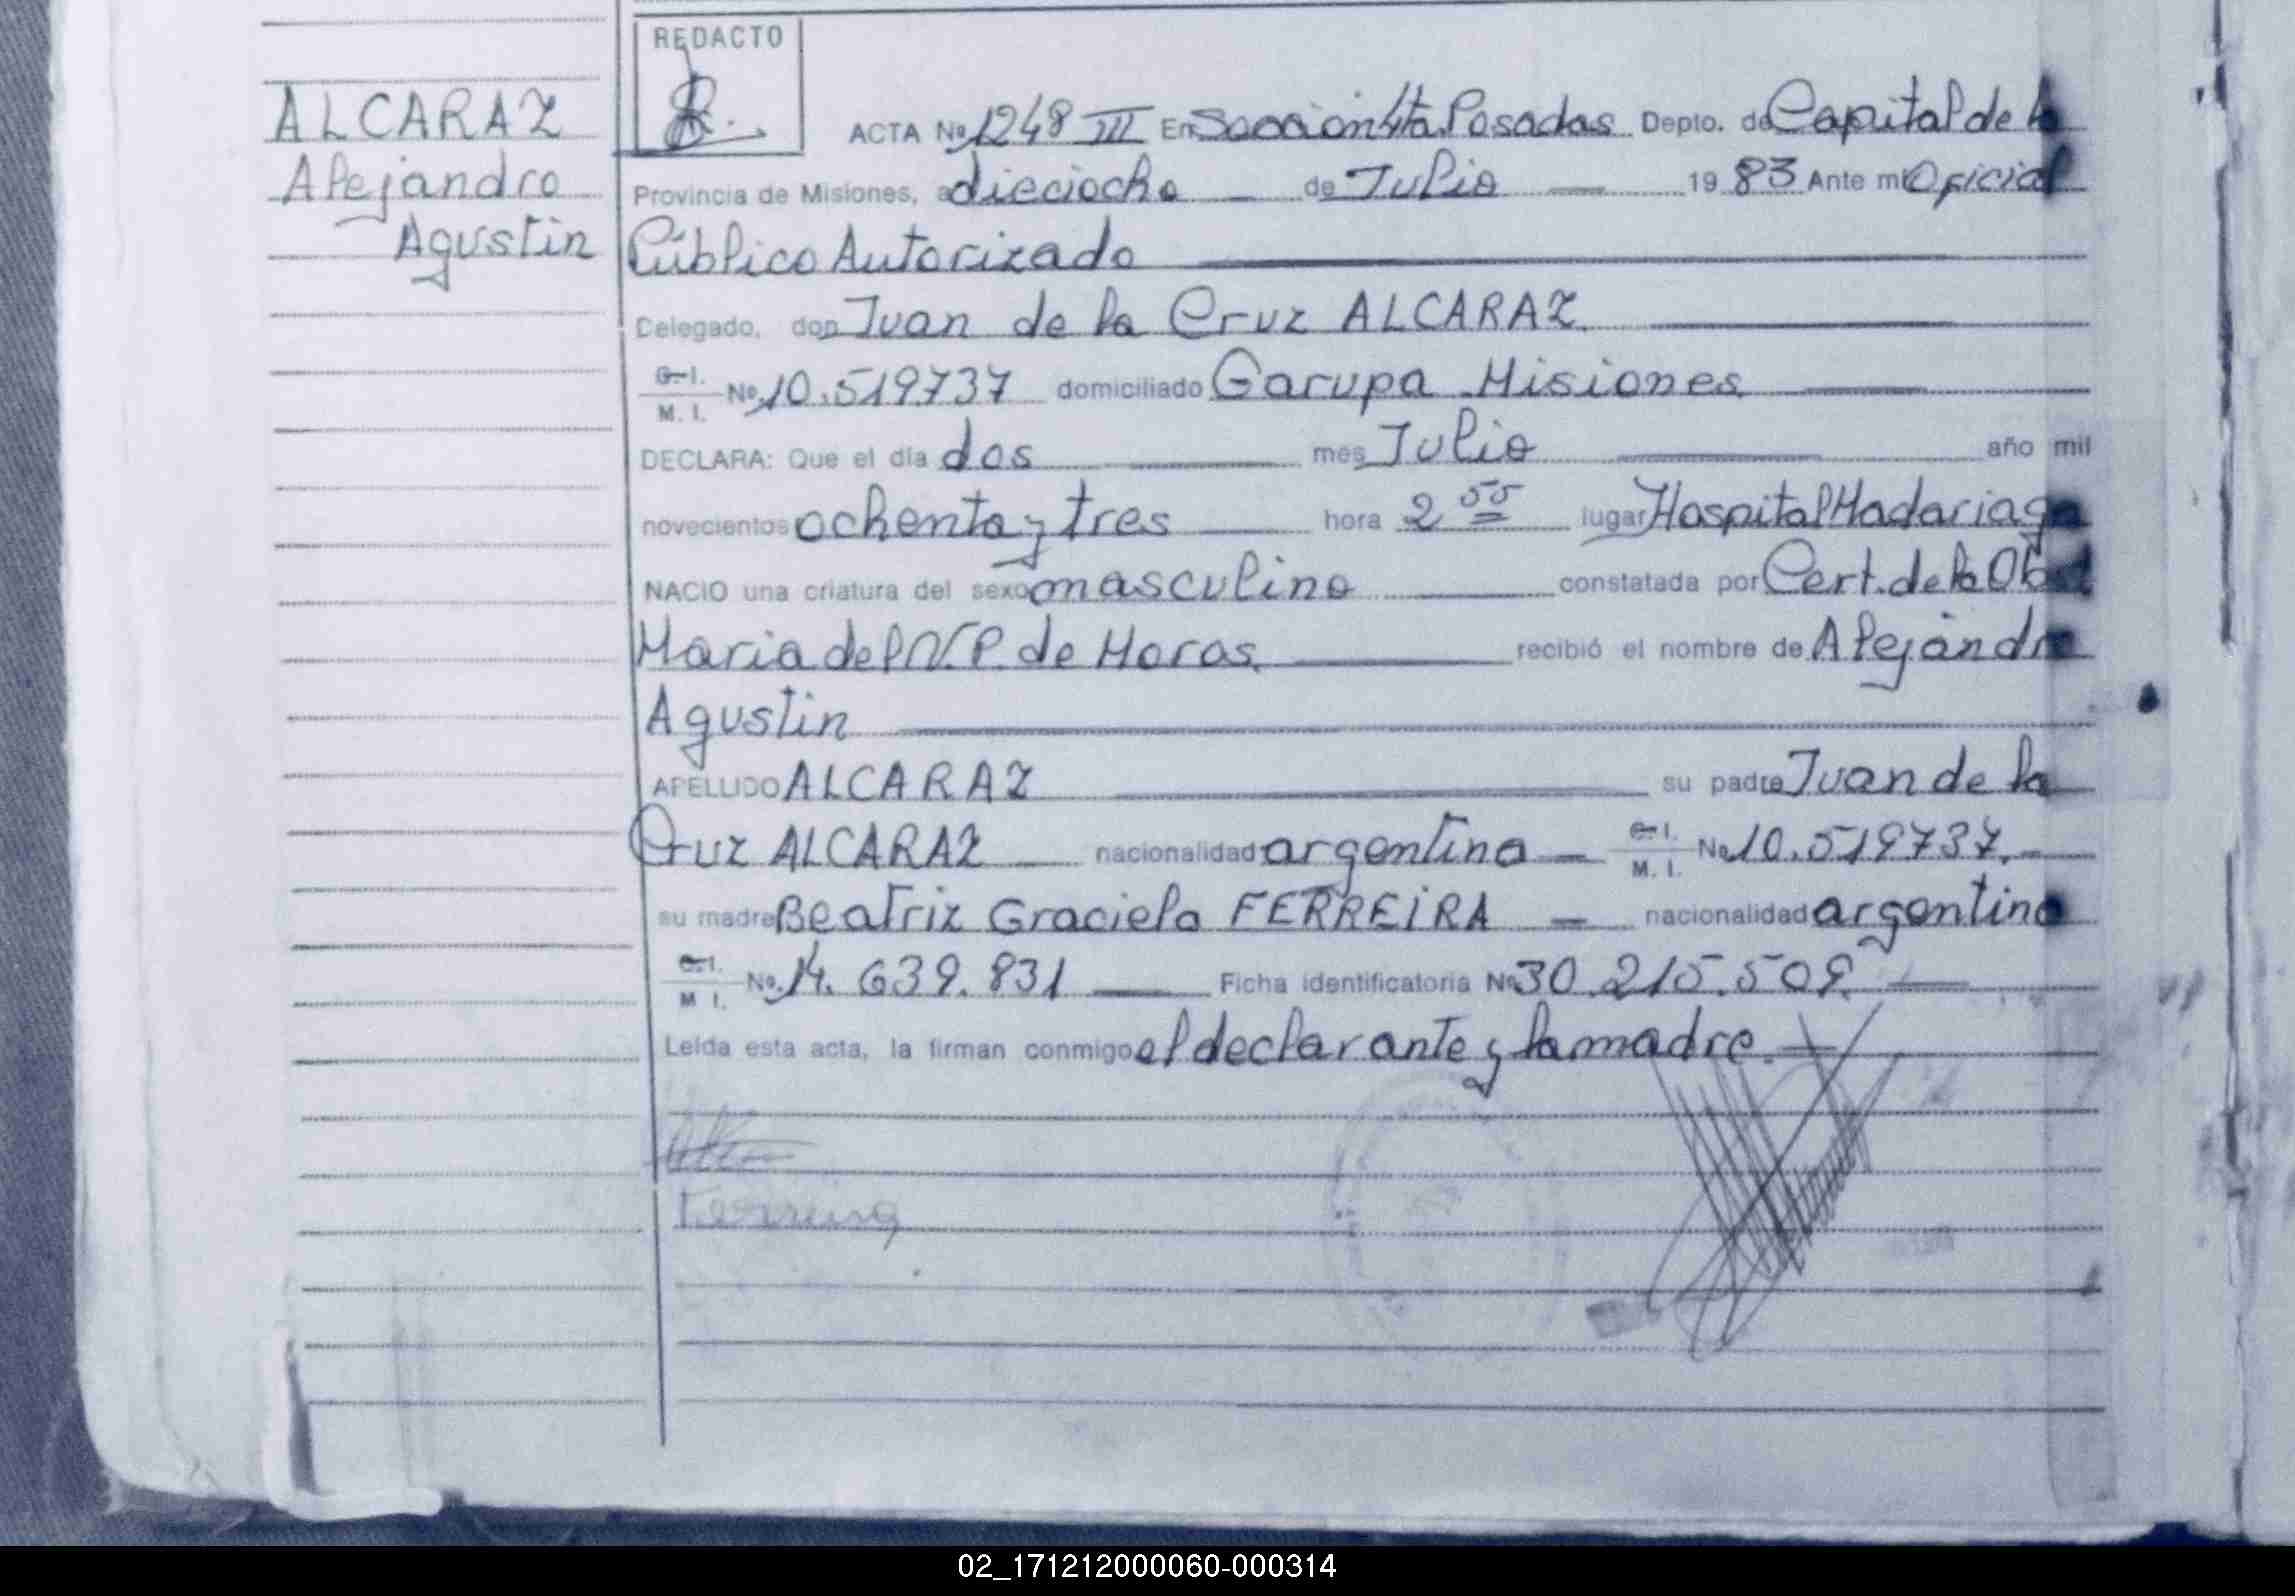 REDACTO
ALCARAZ
Alejandro
Agustin
ACTA Nº 1248 III En Sección 4ta. Posadas Depto. de Capital de la
Provincia de Misiones, a dieciocho de Julio 1983 Ante mi Oficial
Público Autorizado
Delegado, don Juan de la Cruz ALCARAZ
C. I. M. I. Nº 10.519737 domiciliado Garupa Misiones
DECLARA: Que el día dos mes Julio año mil
novecientos ochenta y tres hora 2 55 lugar Hospital Madariaga
NACIO una criatura del sexo masculino constatada por Cert. de la Obst
Maria del N. P. de Moras recibió el nombre de Alejandro
Agustin
APELLIDO ALCARAZ su padre Juan de la
Cruz ALCARAZ nacionalidad argentina C. I. M. I. Nº 10.519737.
su madre Beatriz Graciela FERREIRA nacionalidad argentina
C. I. M I. Nº 14.639.831 Ficha identificatoria Nº 30.215.509.
Leída esta acta, la firman conmigo el declarante y la madre.
Ferreira
02_171212000060-000314